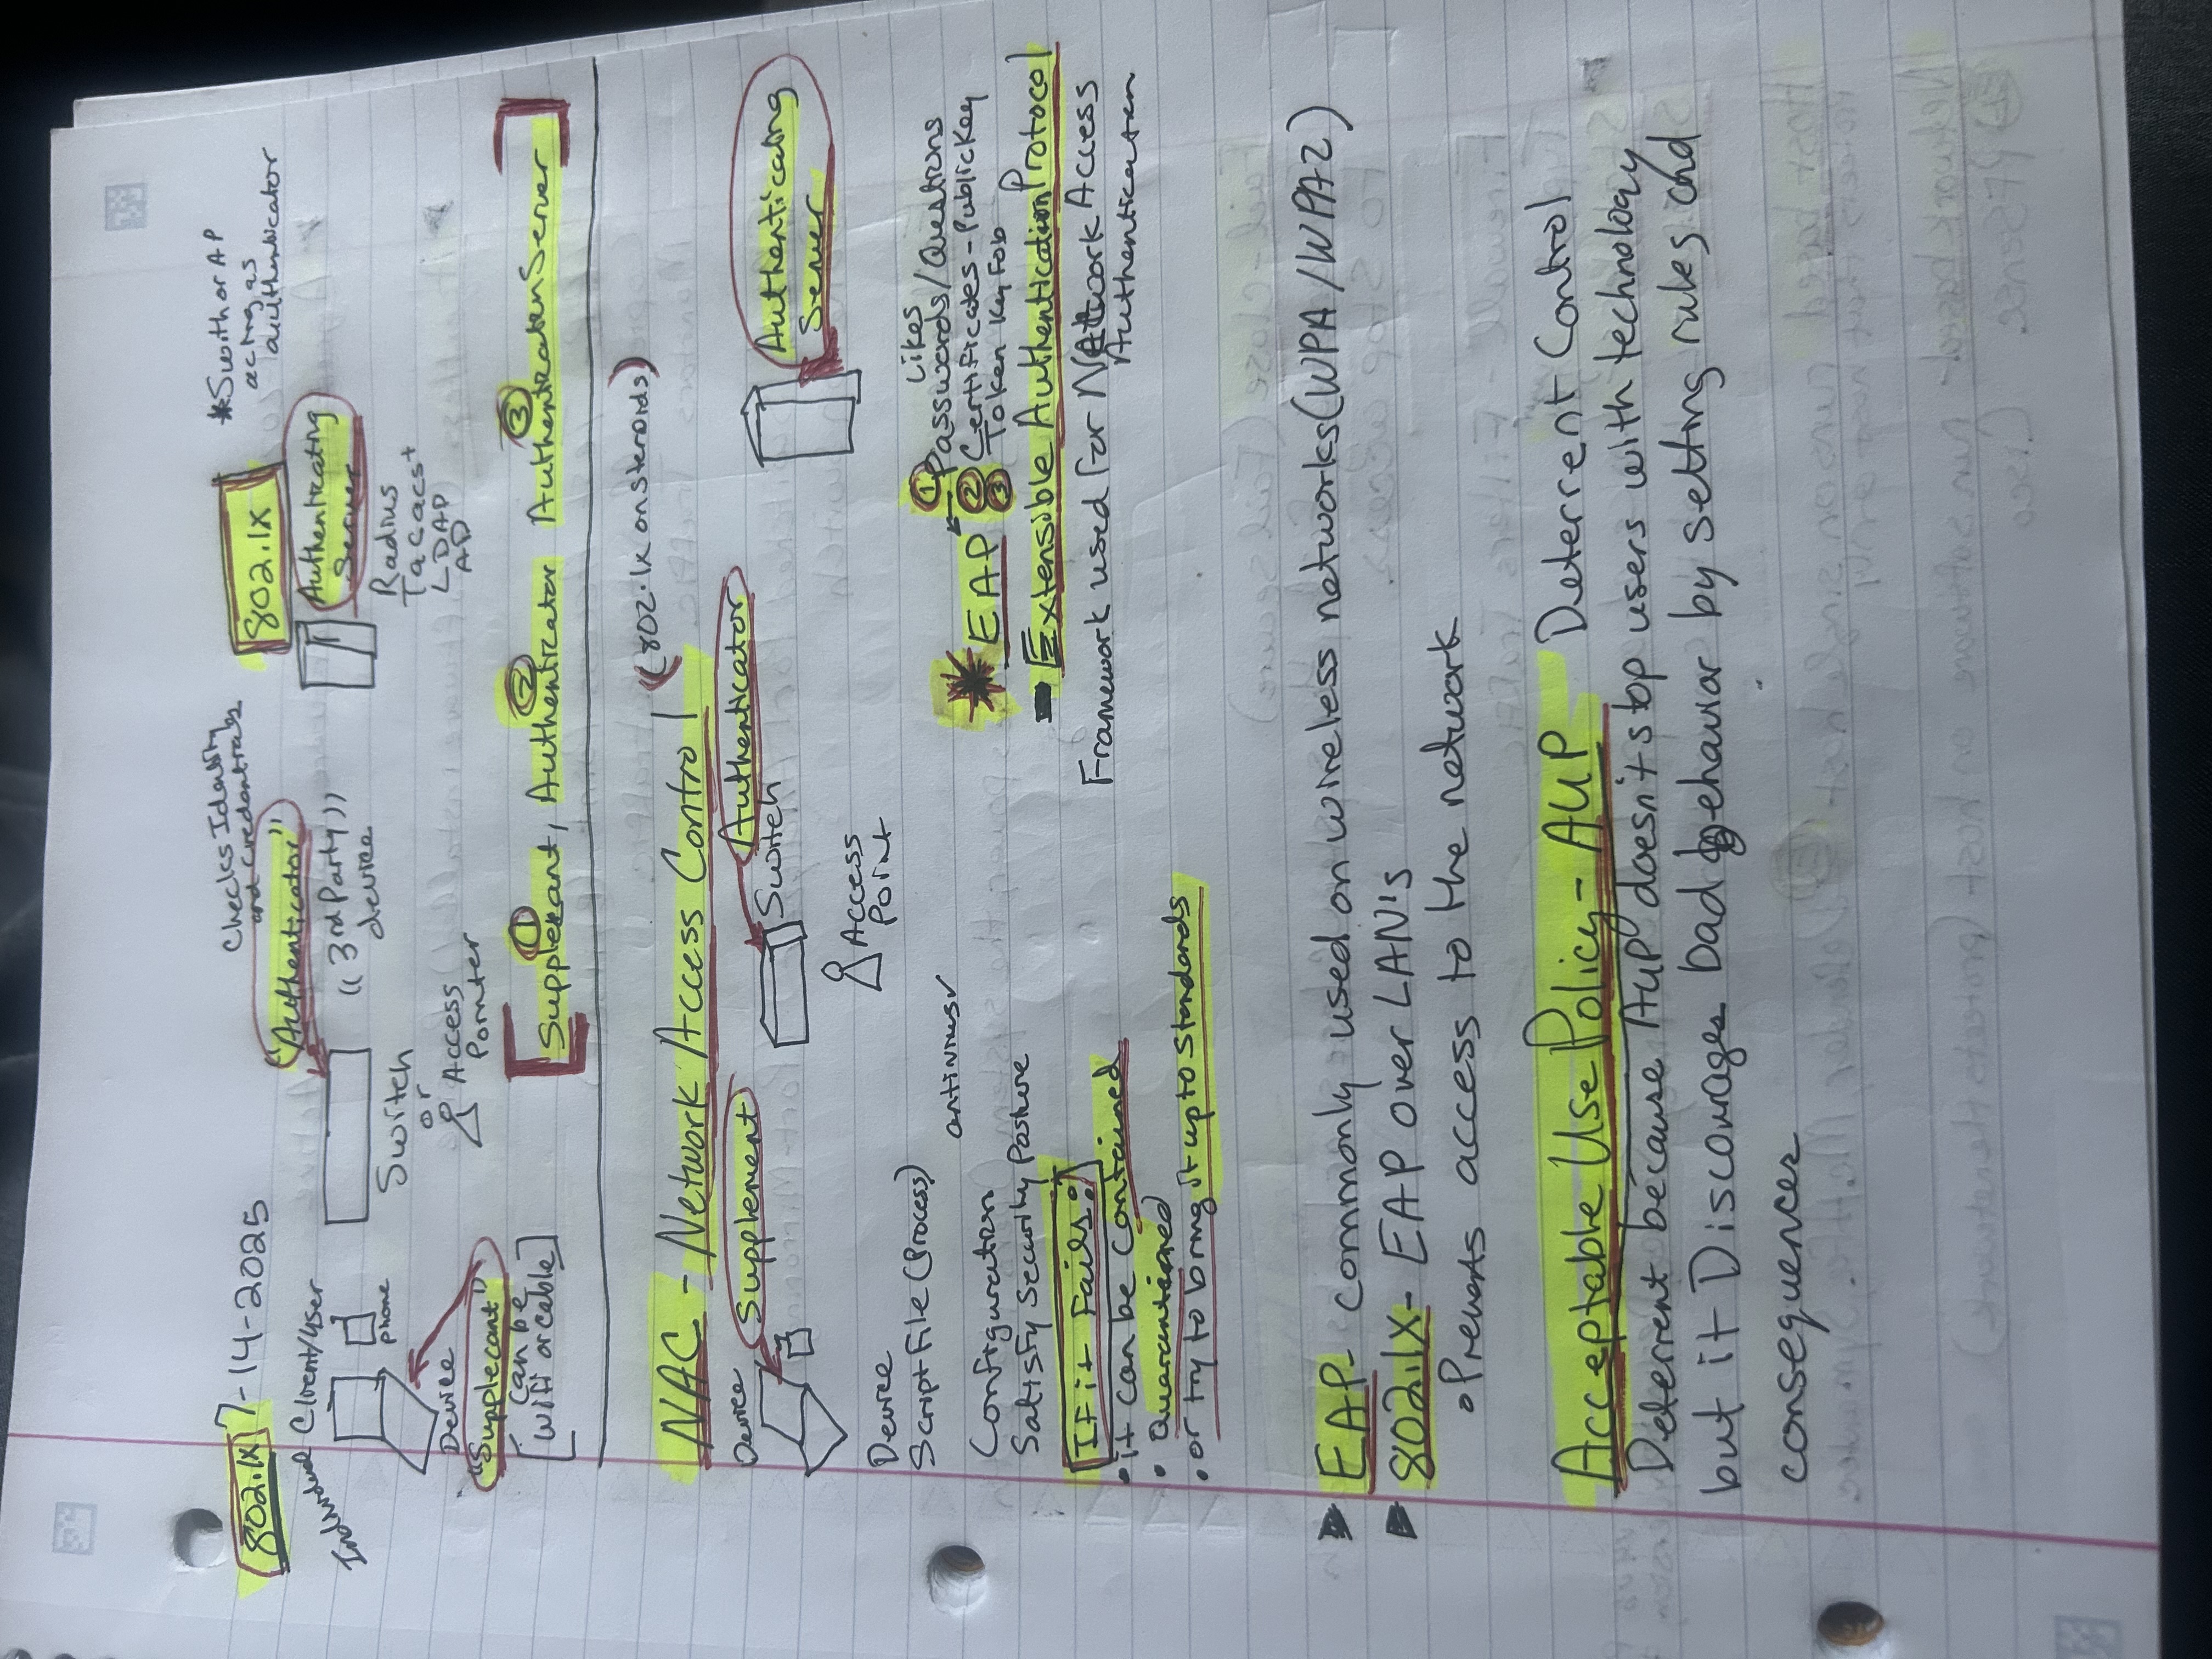 802.1x 7-14-2025
Individual Client/user
phone
Device
"Supplecant"
can be
[wifi or cable]
Checks Identity
and credentials
"Authenticator"
((3rd Party))
device
Switch
or
Access
Pointer
802.1x
*Swith or AP
acting as
authenticator
Authenticating
Server
Radius
Tacacs+
LDAP
AD
① ② ③
[Supplecant, Authenticator Authentication Server]
NAC - Network Access Control ((802.1x on steroids)
Device
Supplement
Authenticator
Switch
Access
Point
Authenticating
Server
Device
Script File (Process)
antivirus✓
Configuration
Satisfy Security Posture
If it Fails:
• it can be contained
• Quarantined
• or try to bring it up to standards
Likes
① Passwords/Questions
* EAP ② Certificates - Public Key
③ Token Key Fob
- Extensible Authentication Protocol
Framework used for Network Access
Authentication
► EAP- commonly used on wireless networks (WPA/WPA2)
► 802.1X- EAP over LAN's
• Prevents access to the network
Acceptable Use Policy - AUP Deterrent Control
Deterrent because AUP doesn't stop users with technology
but it Discourages bad behavior by setting rules and
consequences